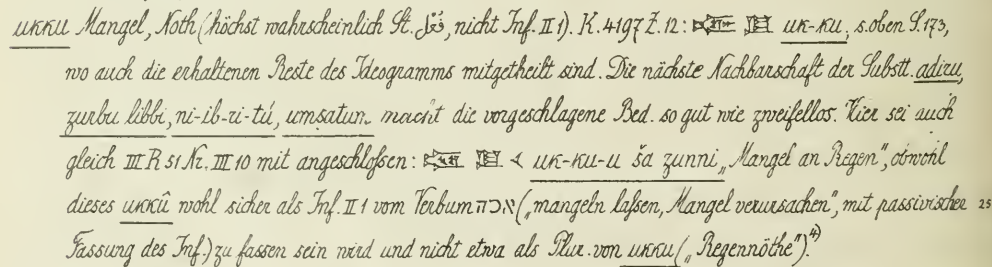 ukku Mangel, Noth (höchst wahrscheinlich St. فُعْل, nicht Inf. II 1). K. 4197 Z. 12: uk-ku, s. oben S. 173,
wo auch die erhaltenen Reste des Ideogramms mitgetheilt sind. Die nächste Nachbarschaft der Substt. adiru,
zurbu libbi, ni-ib-ri-tú, umṣatum macht die vorgeschlagene Bed. so gut wie zweifellos. Hier sei auch
gleich III R 51 Nr. III 10 mit angeschloßen: uk-ku-u ša zunni „Mangel an Regen“, obwohl
dieses ukkû wohl sicher als Inf. II 1 vom Verbum אכה („mangeln laßen, Mangel verursachen“, mit passivischer 25
Fassung des Inf.) zu fassen sein wird und nicht etwa als Plur. von ukku („Regennöthe“).⁴⁾